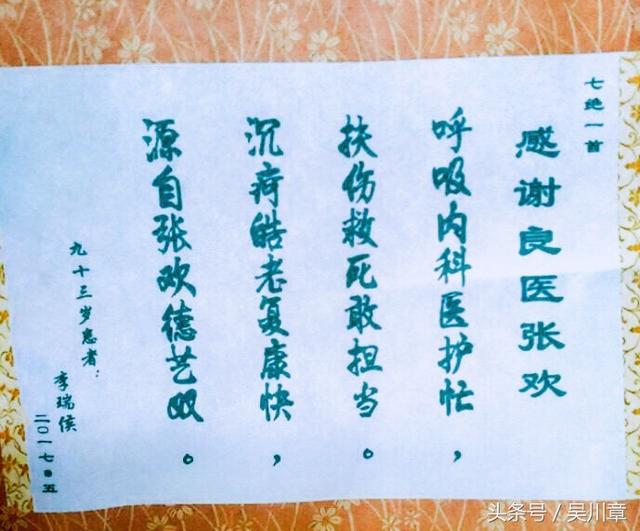 七绝一首
感谢良医张欢
呼吸内科医护忙，
扶伤救死敢担当。
沉疴皓老复康快，
源自张欢德艺双。
九十三岁患者：
李瑞侯
二〇一七·五
头条号／吴川章